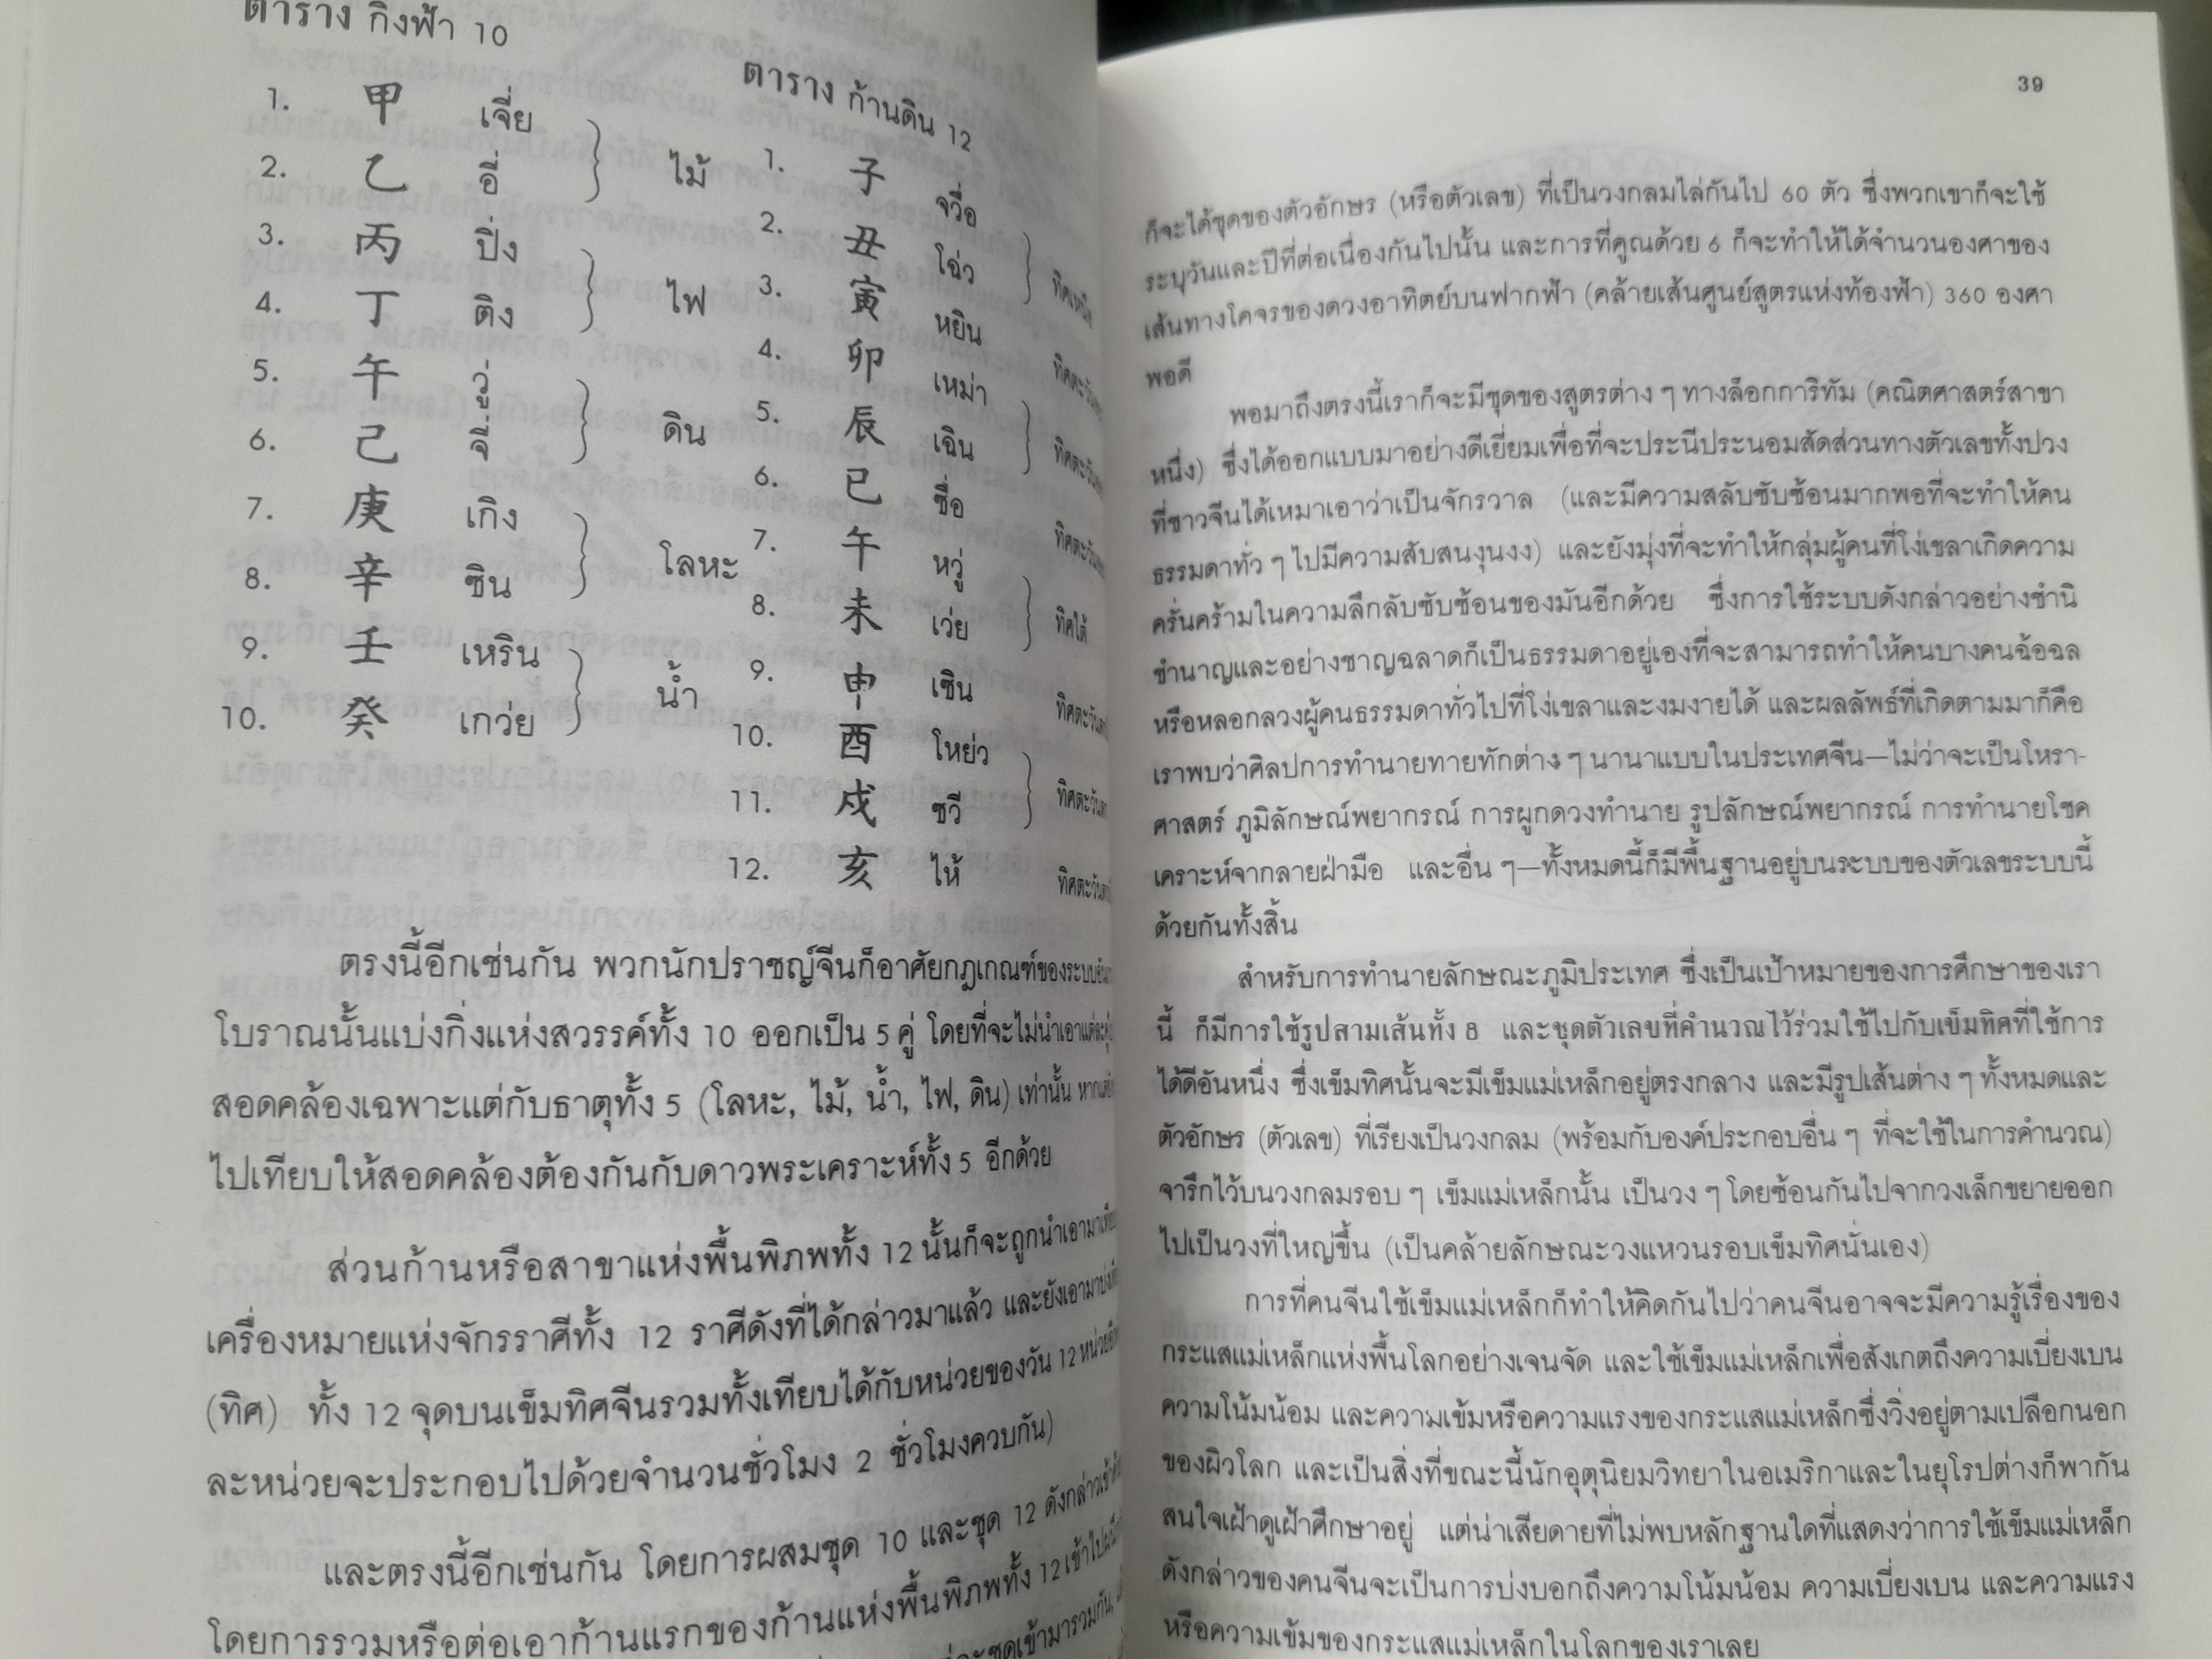 ตาราง กิ่งฟ้า 10
1. 甲 เจี่ย
2. 乙 อี่
ไม้
3. 丙 ปิ่ง
4. 丁 ติง
ไฟ
5. 午 วู่
6. 己 จี่
ดิน
7. 庚 เกิง
8. 辛 ซิน
โลหะ
9. 壬 เหริน
10. 癸 เกว่ย
น้ำ
ตาราง ก้านดิน 12
1. 子 จวื่อ
2. 丑 โฉ่ว
ทิศเหนือ
3. 寅 หยิน
ทิศตะวัน
4. 卯 เหม่า
5. 辰 เฉิน
ทิศตะวัน
6. 已 ซื่อ
ทิศตะวัน
7. 午 หวู่
8. 未 เว่ย
ทิศใต้
9. 申 เซิน
ทิศตะวัน
10. 酉 โหย่ว
11. 戍 ซวี
ทิศตะวัน
12. 亥 ไห้
ทิศตะวัน
ตรงนี้อีกเช่นกัน พวกนักปราชญ์จีนก็อาศัยกฎเกณฑ์ของระบบ
โบราณนั้นแบ่งกิ่งแห่งสวรรค์ทั้ง 10 ออกเป็น 5 คู่ โดยที่จะไม่นำเอาแต่ละ
สอดคล้องเฉพาะแต่กับธาตุทั้ง 5 (โลหะ, ไม้, น้ำ, ไฟ, ดิน) เท่านั้น
ไปเทียบให้สอดคล้องต้องกันกับดาวพระเคราะห์ทั้ง 5 อีกด้วย
ส่วนก้านหรือสาขาแห่งพื้นพิภพทั้ง 12 นั้นก็จะถูกนำเอามา
เครื่องหมายแห่งจักรราศีทั้ง 12 ราศีดังที่ได้กล่าวมาแล้ว และยังเอามา
(ทิศ) ทั้ง 12 จุดบนเข็มทิศจีนรวมทั้งเทียบได้กับหน่วยของวัน 12 หน่วย
ละหน่วยจะประกอบไปด้วยจำนวนชั่วโมง 2 ชั่วโมงควบกัน)
และตรงนี้อีกเช่นกัน โดยการผสมชุด 10 และชุด 12 ดังกล่าว
โดยการรวมหรือต่อเอาก้านแรกของก้านแห่งพื้นพิภพทั้ง 12 เข้าไป
ชุดเข้ามารวมกัน,
39
ก็จะได้ชุดของตัวอักษร (หรือตัวเลข) ที่เป็นวงกลมไล่กันไป 60 ตัว ซึ่งพวกเขาก็จะใช้
ระบุวันและปีที่ต่อเนื่องกันไปนั้น และการที่คูณด้วย 6 ก็จะทำให้ได้จำนวนองศาของ
เส้นทางโคจรของดวงอาทิตย์บนฟากฟ้า (คล้ายเส้นศูนย์สูตรแห่งท้องฟ้า) 360 องศา
พอดี
พอมาถึงตรงนี้เราก็จะมีชุดของสูตรต่าง ๆ ทางล็อกการิทัม (คณิตศาสตร์สาขา
หนึ่ง) ซึ่งได้ออกแบบมาอย่างดีเยี่ยมเพื่อที่จะประนีประนอมสัดส่วนทางตัวเลขทั้งปวง
ที่ชาวจีนได้เหมาเอาว่าเป็นจักรวาล (และมีความสลับซับซ้อนมากพอที่จะทำให้คน
ธรรมดาทั่ว ๆ ไปมีความสับสนงุนงง) และยังมุ่งที่จะทำให้กลุ่มผู้คนที่โง่เขลาเกิดความ
ครั่นคร้ามในความลึกลับซับซ้อนของมันอีกด้วย ซึ่งการใช้ระบบดังกล่าวอย่างชำนิ
ชำนาญและอย่างชาญฉลาดก็เป็นธรรมดาอยู่เองที่จะสามารถทำให้คนบางคนฉ้อฉล
หรือหลอกลวงผู้คนธรรมดาทั่วไปที่โง่เขลาและงมงายได้ และผลลัพธ์ที่เกิดตามมาก็คือ
เราพบว่าศิลปการทำนายทายทักต่าง ๆ นานาแบบในประเทศจีน—ไม่ว่าจะเป็นโหรา-
ศาสตร์ ภูมิลักษณ์พยากรณ์ การผูกดวงทำนาย รูปลักษณ์พยากรณ์ การทำนายโชค
เคราะห์จากลายฝ่ามือ และอื่น ๆ—ทั้งหมดนี้ก็มีพื้นฐานอยู่บนระบบของตัวเลขระบบนี้
ด้วยกันทั้งสิ้น
สำหรับการทำนายลักษณะภูมิประเทศ ซึ่งเป็นเป้าหมายของการศึกษาของเรา
นี้ ก็มีการใช้รูปสามเส้นทั้ง 8 และชุดตัวเลขที่คำนวณไว้ร่วมใช้ไปกับเข็มทิศที่ใช้การ
ได้ดีอันหนึ่ง ซึ่งเข็มทิศนั้นจะมีเข็มแม่เหล็กอยู่ตรงกลาง และมีรูปเส้นต่าง ๆ ทั้งหมดและ
ตัวอักษร (ตัวเลข) ที่เรียงเป็นวงกลม (พร้อมกับองค์ประกอบอื่น ๆ ที่จะใช้ในการคำนวณ)
จารึกไว้บนวงกลมรอบ ๆ เข็มแม่เหล็กนั้น เป็นวง ๆ โดยซ้อนกันไปจากวงเล็กขยายออก
ไปเป็นวงที่ใหญ่ขึ้น (เป็นคล้ายลักษณะวงแหวนรอบเข็มทิศนั่นเอง)
การที่คนจีนใช้เข็มแม่เหล็กก็ทำให้คิดกันไปว่าคนจีนอาจจะมีความรู้เรื่องของ
กระแสแม่เหล็กแห่งพื้นโลกอย่างเจนจัด และใช้เข็มแม่เหล็กเพื่อสังเกตถึงความเบี่ยงเบน
ความโน้มน้อม และความเข้มหรือความแรงของกระแสแม่เหล็กซึ่งวิ่งอยู่ตามเปลือกนอก
ของผิวโลก และเป็นสิ่งที่ขณะนี้นักอุตุนิยมวิทยาในอเมริกาและในยุโรปต่างก็พากัน
สนใจเฝ้าดูเฝ้าศึกษาอยู่ แต่น่าเสียดายที่ไม่พบหลักฐานใดที่แสดงว่าการใช้เข็มแม่เหล็ก
ดังกล่าวของคนจีนจะเป็นการบ่งบอกถึงความโน้มน้อม ความเบี่ยงเบน และความแรง
หรือความเข้มของกระแสแม่เหล็กในโลกของเราเลย